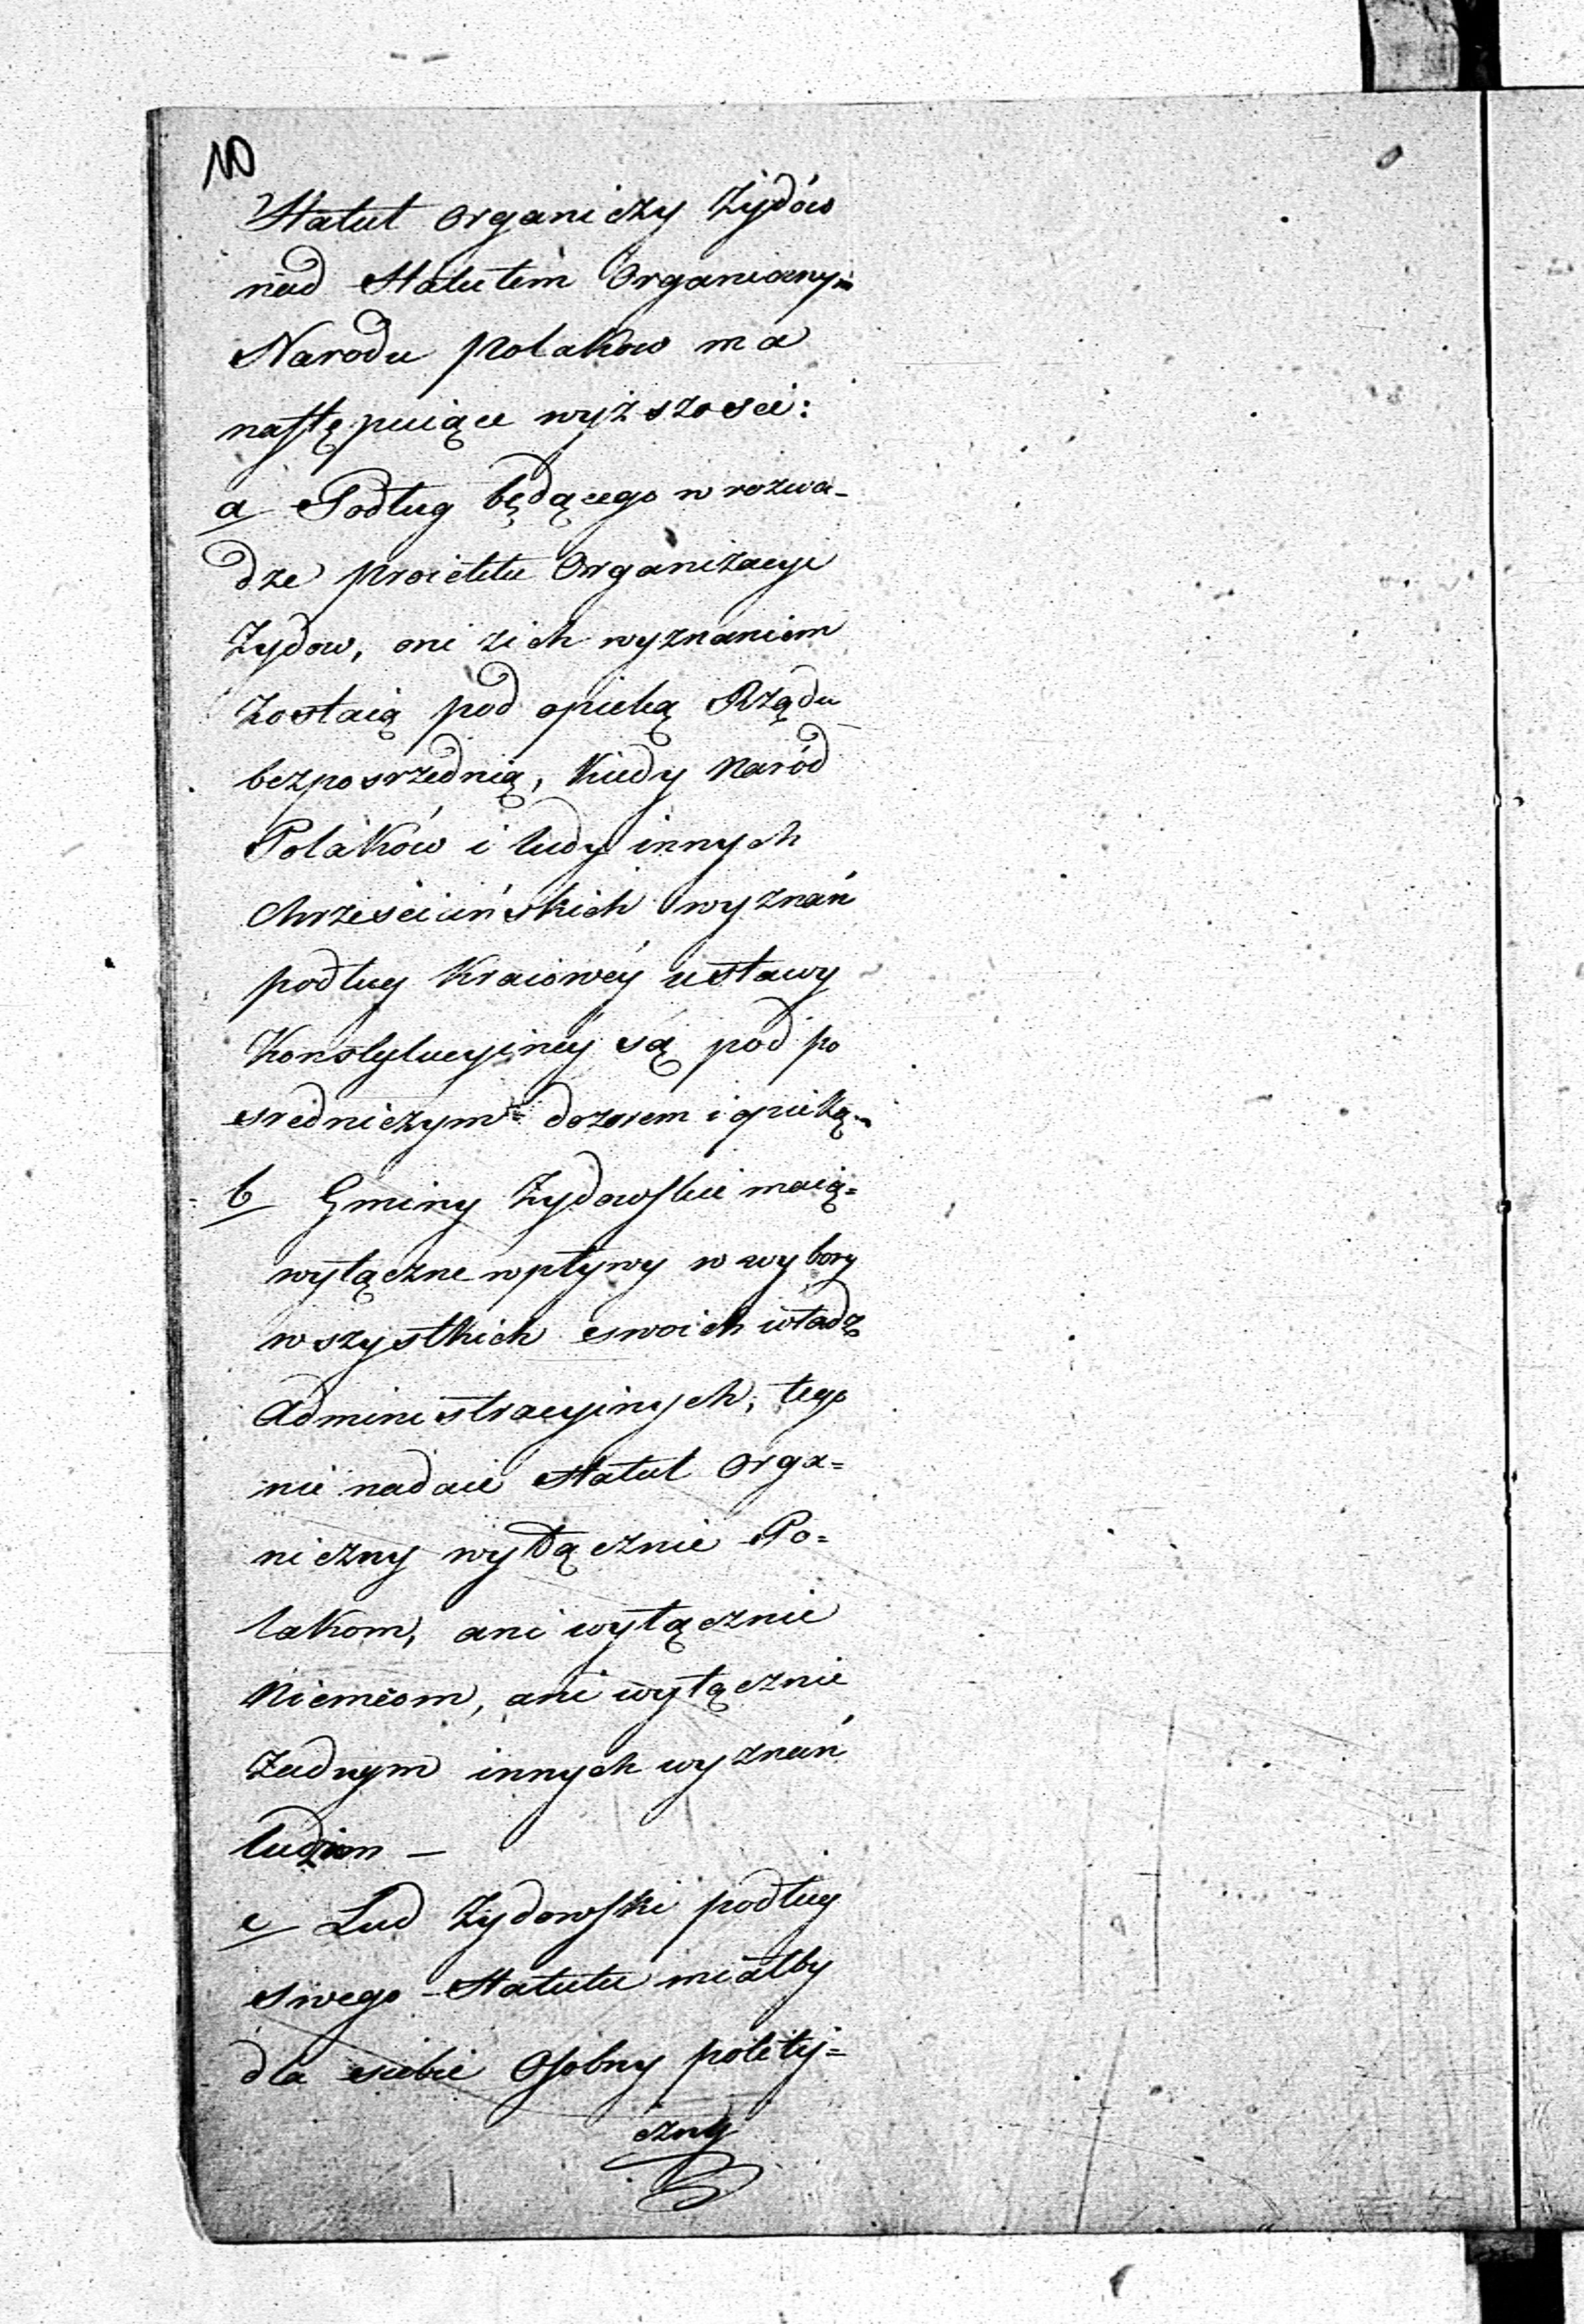 10
Statut organiczy Żydów
nad Statutem Organicznym
Narodu Polakow ma
następuiące wyższosci:
a Podług będącego w rozwa-
dze proiektu Organizacyi
Żydow, oni z ich wyznaniem
zostaią pod opieką Rządu
bezposrzednią, Kiedy Naród
Polaków i ludy innych
Chrześciańskich wyznań
podług Kraiowéy ustawy
Konstytucyinéy są pod po
sredniczym= dozorem i opieką.
b Gminy Żydowskie maią=
wyłączne wpływy w wybory
wszystkich swoich władz
Administracyinych, tego
nie nadaie Statut Orga=
niczny wyłącznie Po=
lakom, ani wyłącznie
Niemcom, ani wyłącznie
Żadnym innych wyznań
ludziom —
c Lud Żydowski podług
swego Statutu miałby
dla siebie Osobny polity=
czny